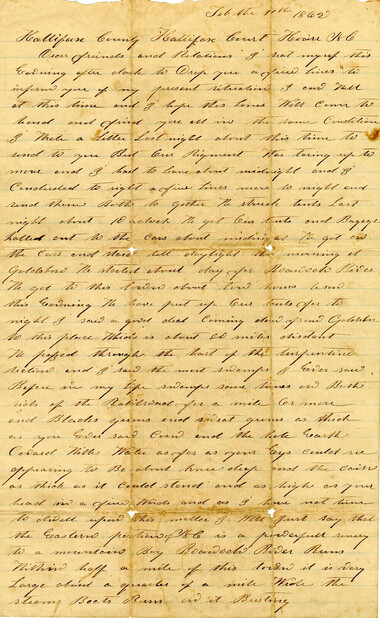 Feb the 11th 1862
Hallifax County Hallifax Court House NC
Dear friends and Relations I set myself this
Evening after dark to Drop you a few lines to
inform you of my present situation I am well
at this time and I hope this lines Will Come to
hand and find you all in the same Condition
I Wrote a Letter Last night about this time to
send to you But Our Rigment Was bring up to
move and I had to leave about midnight and I
Concluded to right a few lines more to night and
send them Both to gether We struck tents Last
night about 10 oclock We got Our tents and Bagege
halled out to the Cars about midnight We got on
the Cars and staid till daylight this morning at
Goldsboro We started about day for Roanock River
We got to this town about two hours by sun
this Evening We have put up Our tents for to
night I saw a good deal Coming down from Goldsboro
to this place Which is about 80 miles distent
We passed through the hart of the turpentine
section and I saw the most swamps I Ever saw
Before in my life swamps some times on Both
sids of the Railroad for a mile Or more
and Blacks gums and sweet gums as thick
as you Ever saw Corn and the hole Earth
Coverd With Water as far as your Eys could see
appearing to Be about knee deep and the cairn
as thick as it could stand and as high as your
head in a few Words and as I have not time
to dwell upon this matter I Will just say that
the Eastern portion of NC is a powerfull
to a mountain Boy Roanock River Runs
Within half a mile of this town it is very
Large about a quarter of a mile Wide the
steam Boats Run on it